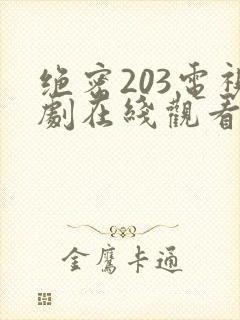 绝密203電視
劇在綫觀看
金鷹卡通